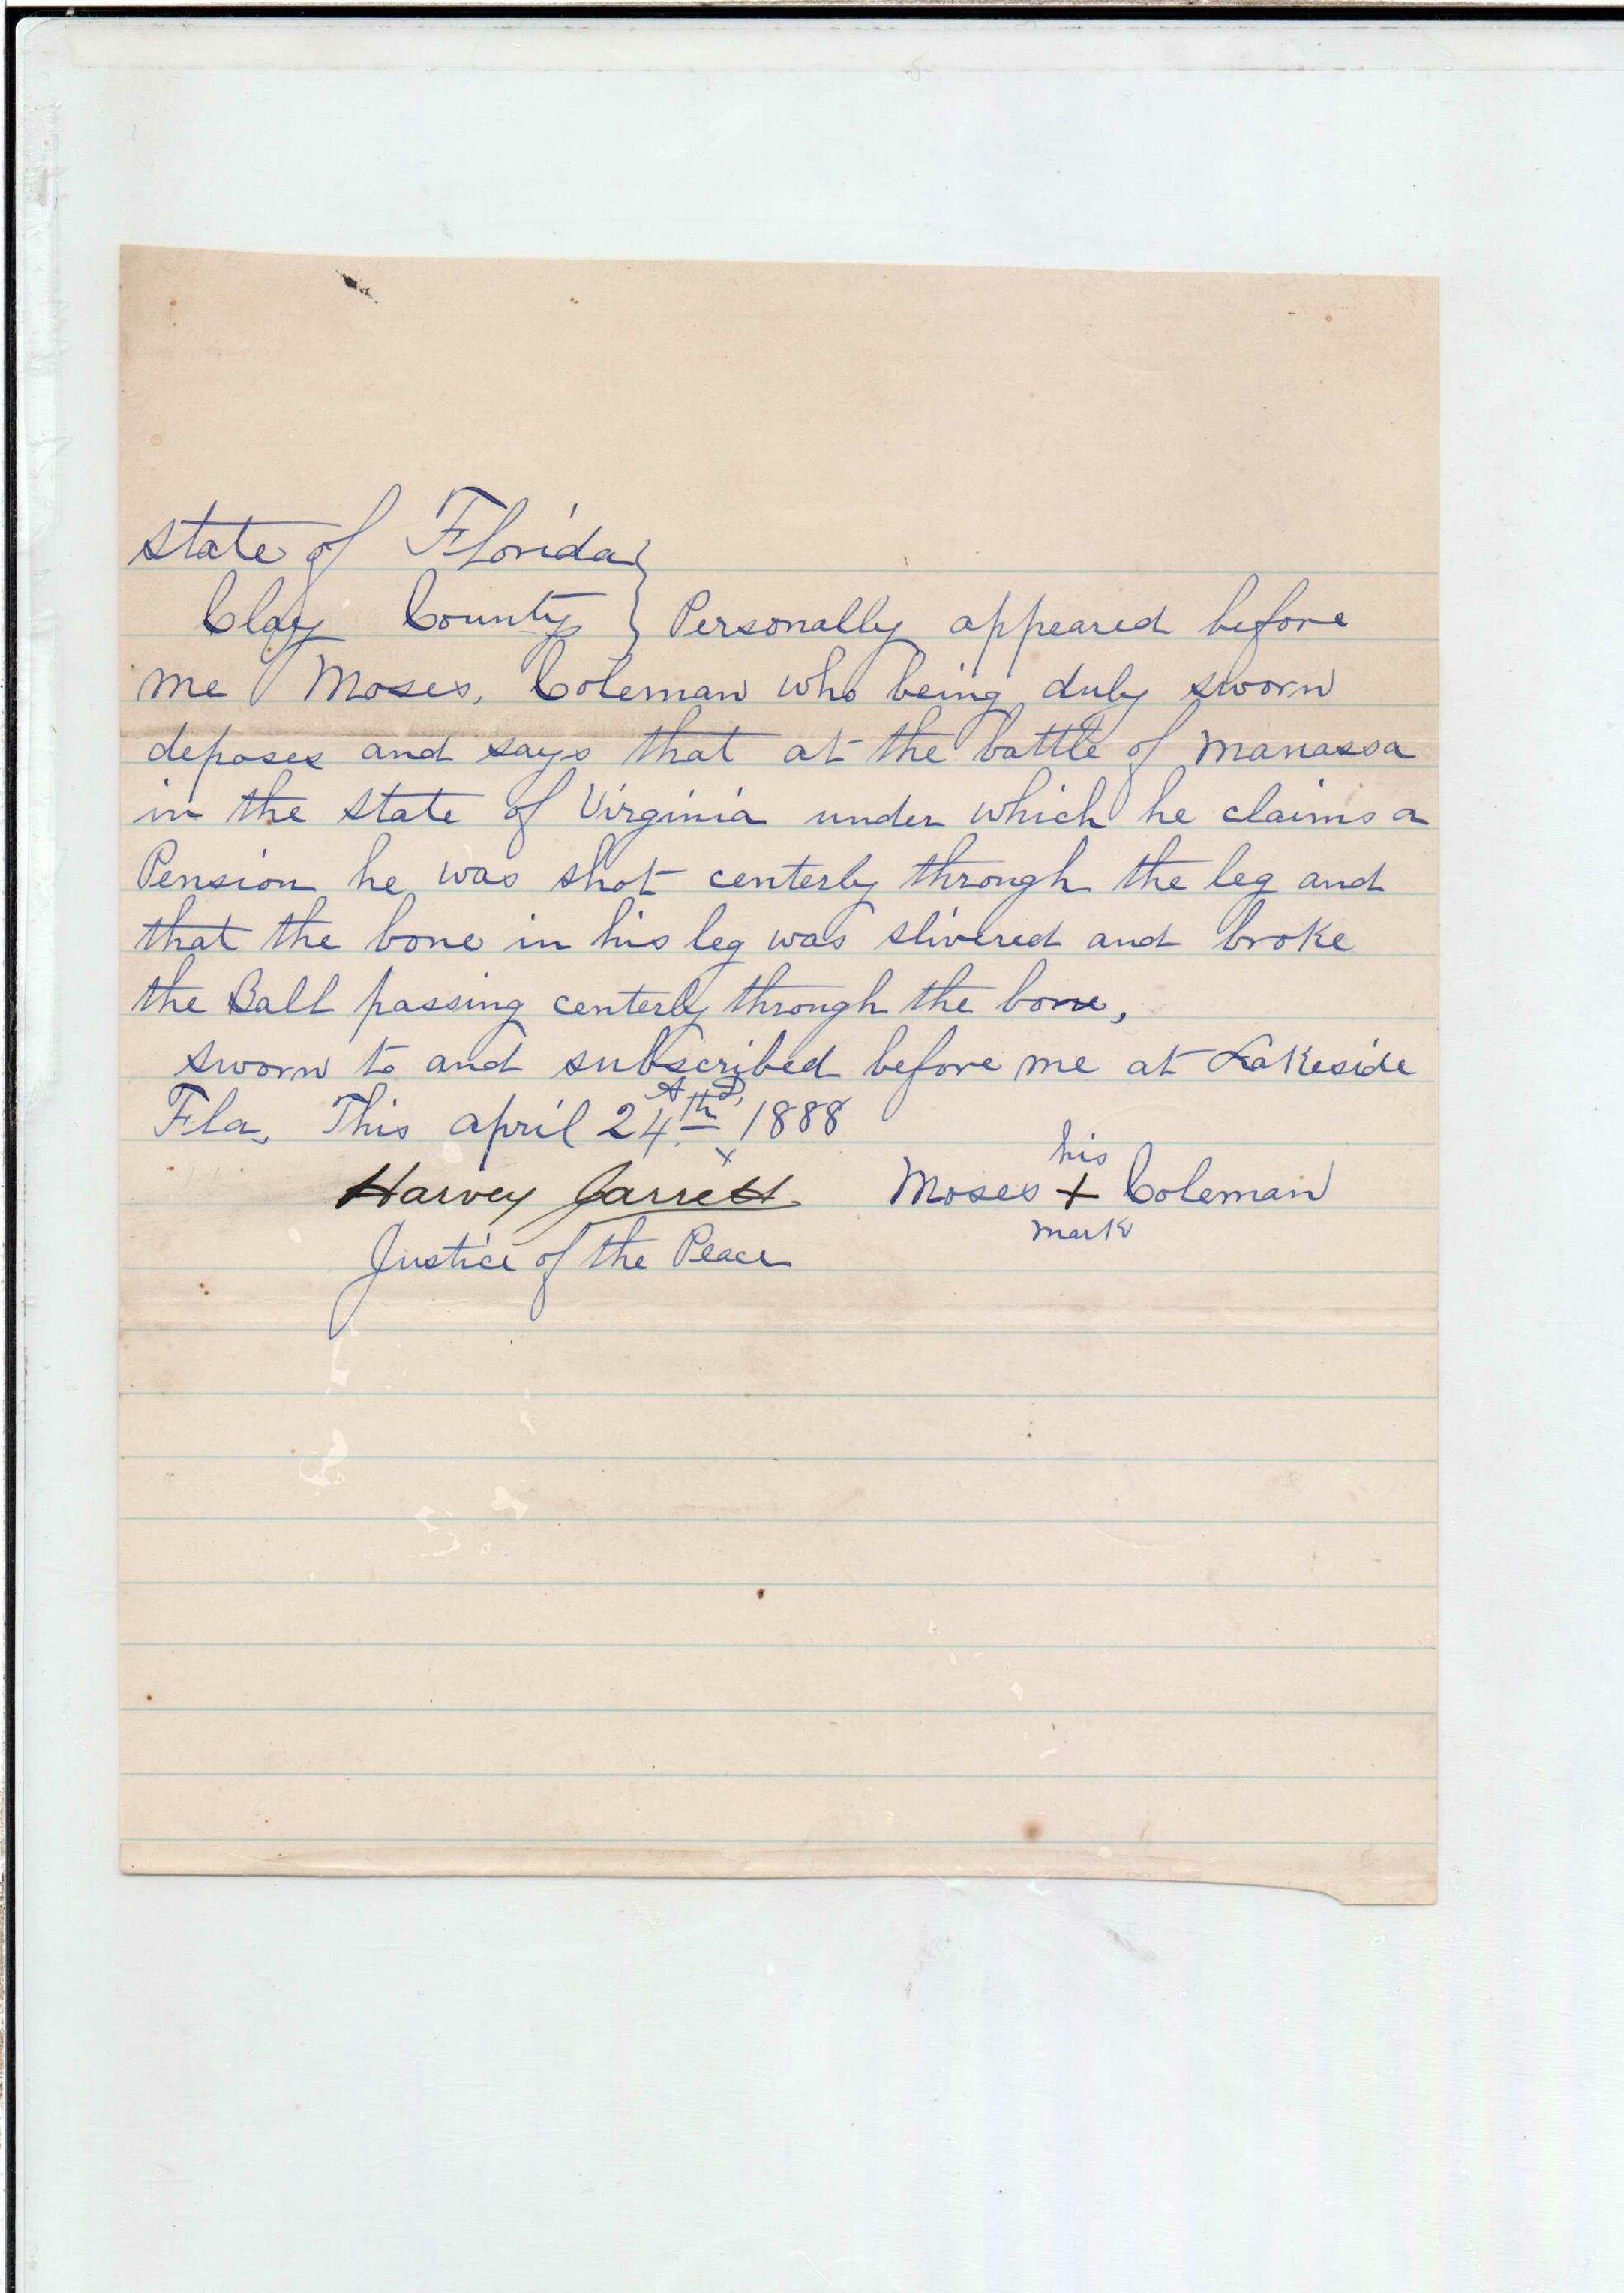 state of Florida }
Clay County } Personally appeared before
me Moses, Coleman who being duly sworn
deposes and says that at the battle of manassa
in the state of Virginia under which he claims a
Pension he was shot centerly through the leg and
that the bone in his leg was slivered and broke
the Ball passing centerly through the bone,
sworn to and subscribed before me at Lakeside
A D,
Fla, This april 24th 1888
x
his
Harvey Jarrett Moses + Coleman
mark
Justice of the Peace